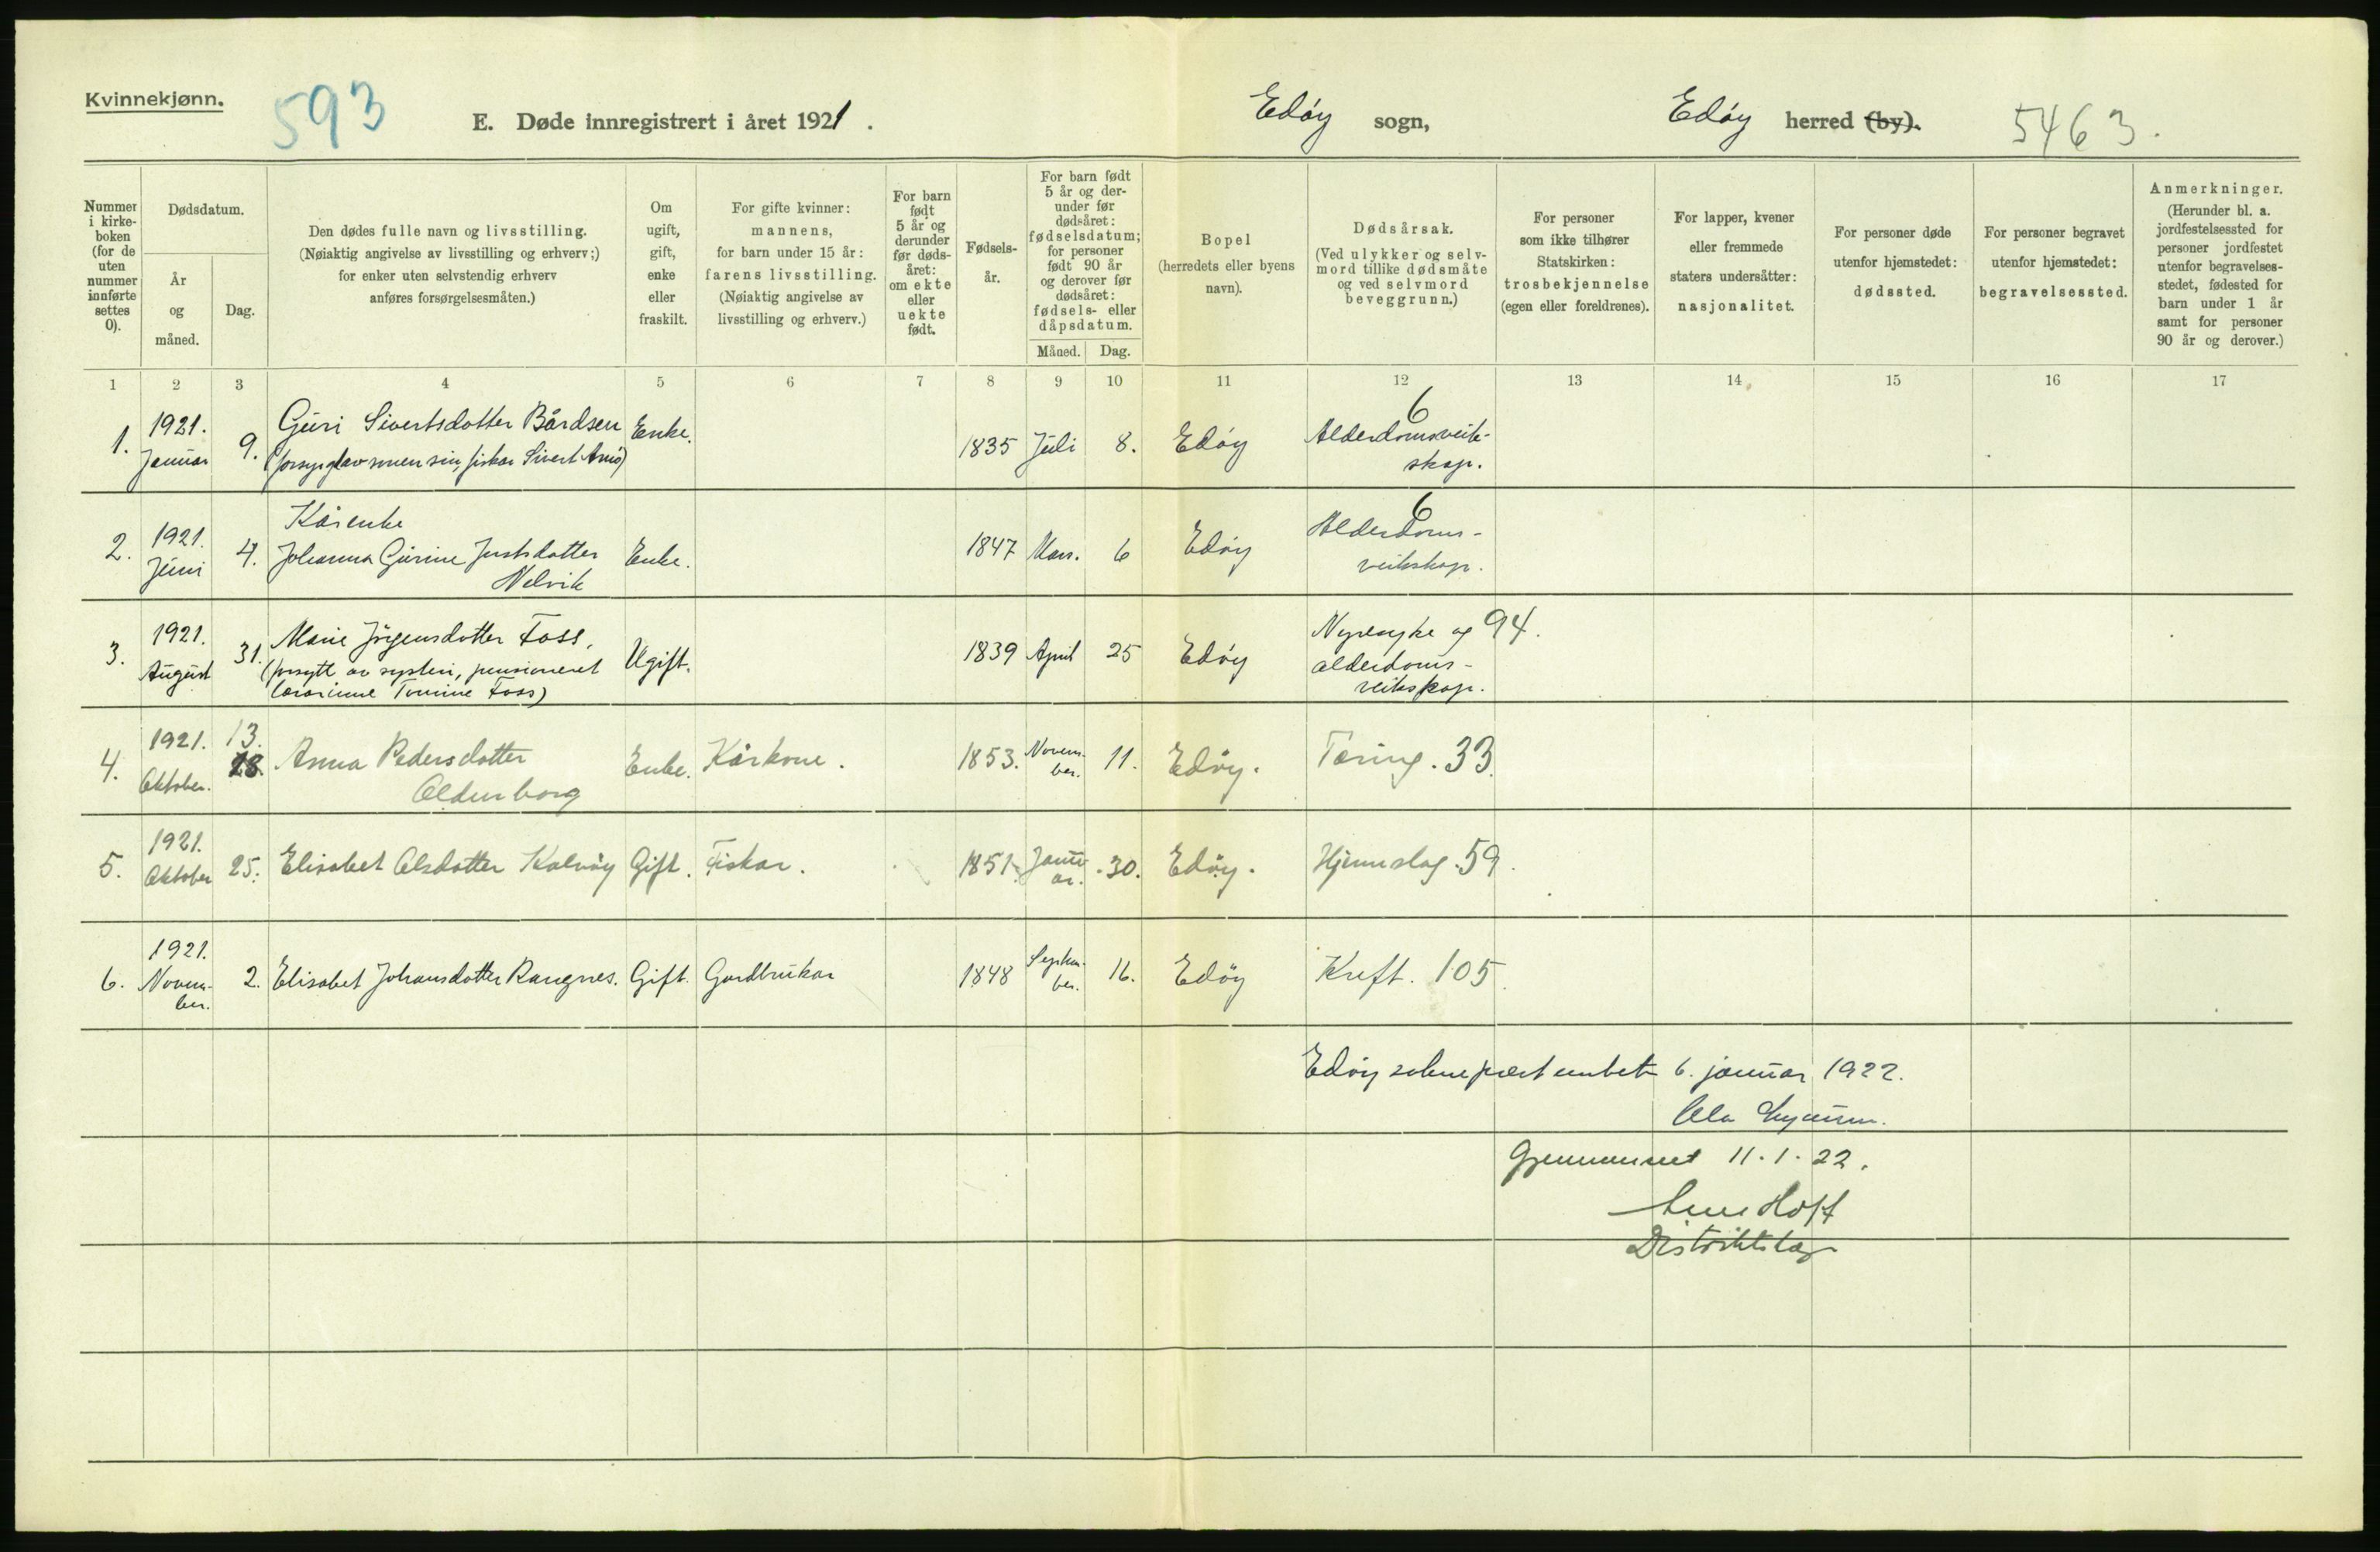 Kvinnekjønn.
593
E. Døde innregistrert i året 1921.
Edöy sogn,
Edöy herred (by).
5463.
Nummer i kirke-boken (for de uten nummer innførte settes 0).
Dødsdatum.
År og måned.
Dag.
Den dødes fulle navn og livsstilling.
(Nøiaktig angivelse av livsstilling og erhverv;)
for enker uten selvstendig erhverv
anføres forsørgelsesmåten.)
Om ugift, gift, enke eller fraskilt.
For gifte kvinner: mannens, for barn under 15 år: farens livsstilling. (Nøiaktig angivelse av livsstilling og erhverv.)
For barn født 5 år og derunder før døds-året: om ekte eller uekte født.
Fødsels-år.
For barn født 5 år og der-under før dødsåret: fødselsdatum; for personer født 90 år og derover før dødsåret: fødsels- eller dåpsdatum.
Måned. Dag.
Bopel (herredets eller byens navn).
Dødsårsak. (Ved ulykker og selv-mord tillike dødsmåte og ved selvmord beveggrunn.)
For personer som ikke tilhører Statskirken: trosbekjennelse (egen eller foreldrenes).
For lapper, kvener eller fremmede staters undersåtter: nasjonalitet.
For personer døde utenfor hjemstedet: dødssted.
For personer begravet utenfor hjemstedet: begravelsessted.
Anmerkninger. (Herunder bl. a. jordfestelsessted for personer jordfestet utenfor begravelses-stedet, fødested for barn under 1 år samt for personer 90 år og derover.)
1 2 3 4 5 6 7 8 9 10 11 12 13 14 15 16 17
1. 1921. Januar 9. Guri Sivertsdotter Bårdsen Enke. 1835 Juli 8. Edöy 6 Alderdomsveik-
skap.
(forsyrgd av sonen sin, fiskar Sivert
2. 1921. Juni 4. Kårenke
Johanna Gurine Justsdotter
Nelvik Enke. 1847 Mars. 6 Edöy 6 Alderdoms-
veikskap.
3. 1921. August 31. Marie Jörgensdotter Foss, Ugift. 1839 April 25 Edöy Nyresyke og 94.
alderdoms-
veikskap.
(forsytt av systeri, pensioneret
lærarinne Tomine Foss)
4. 1921. Oktober. 13. 28. Anna Pedersdotter
Oldenborg Enke. Kårkone. 1853. Novem-
ber. 11. Edöy. Tæring. 33.
5. 1921. Oktober 25. Elisabet Olsdotter Kalvöy Gift. Fiskar. 1851. Janu-
ar. 30. Edöy. Hjerneslag. 59.
6. 1921. Novem-
ber. 2. Elisabet Johansdotter Rangnes. Gift. Gardbrukar 1848 Septem-
ber. 16. Edöy Kreft. 105.
Edöy sokneprestembete 6. januar 1922.
Ola
Gjennemset 11.1.22.
Arne Hoff
Distriktslæge